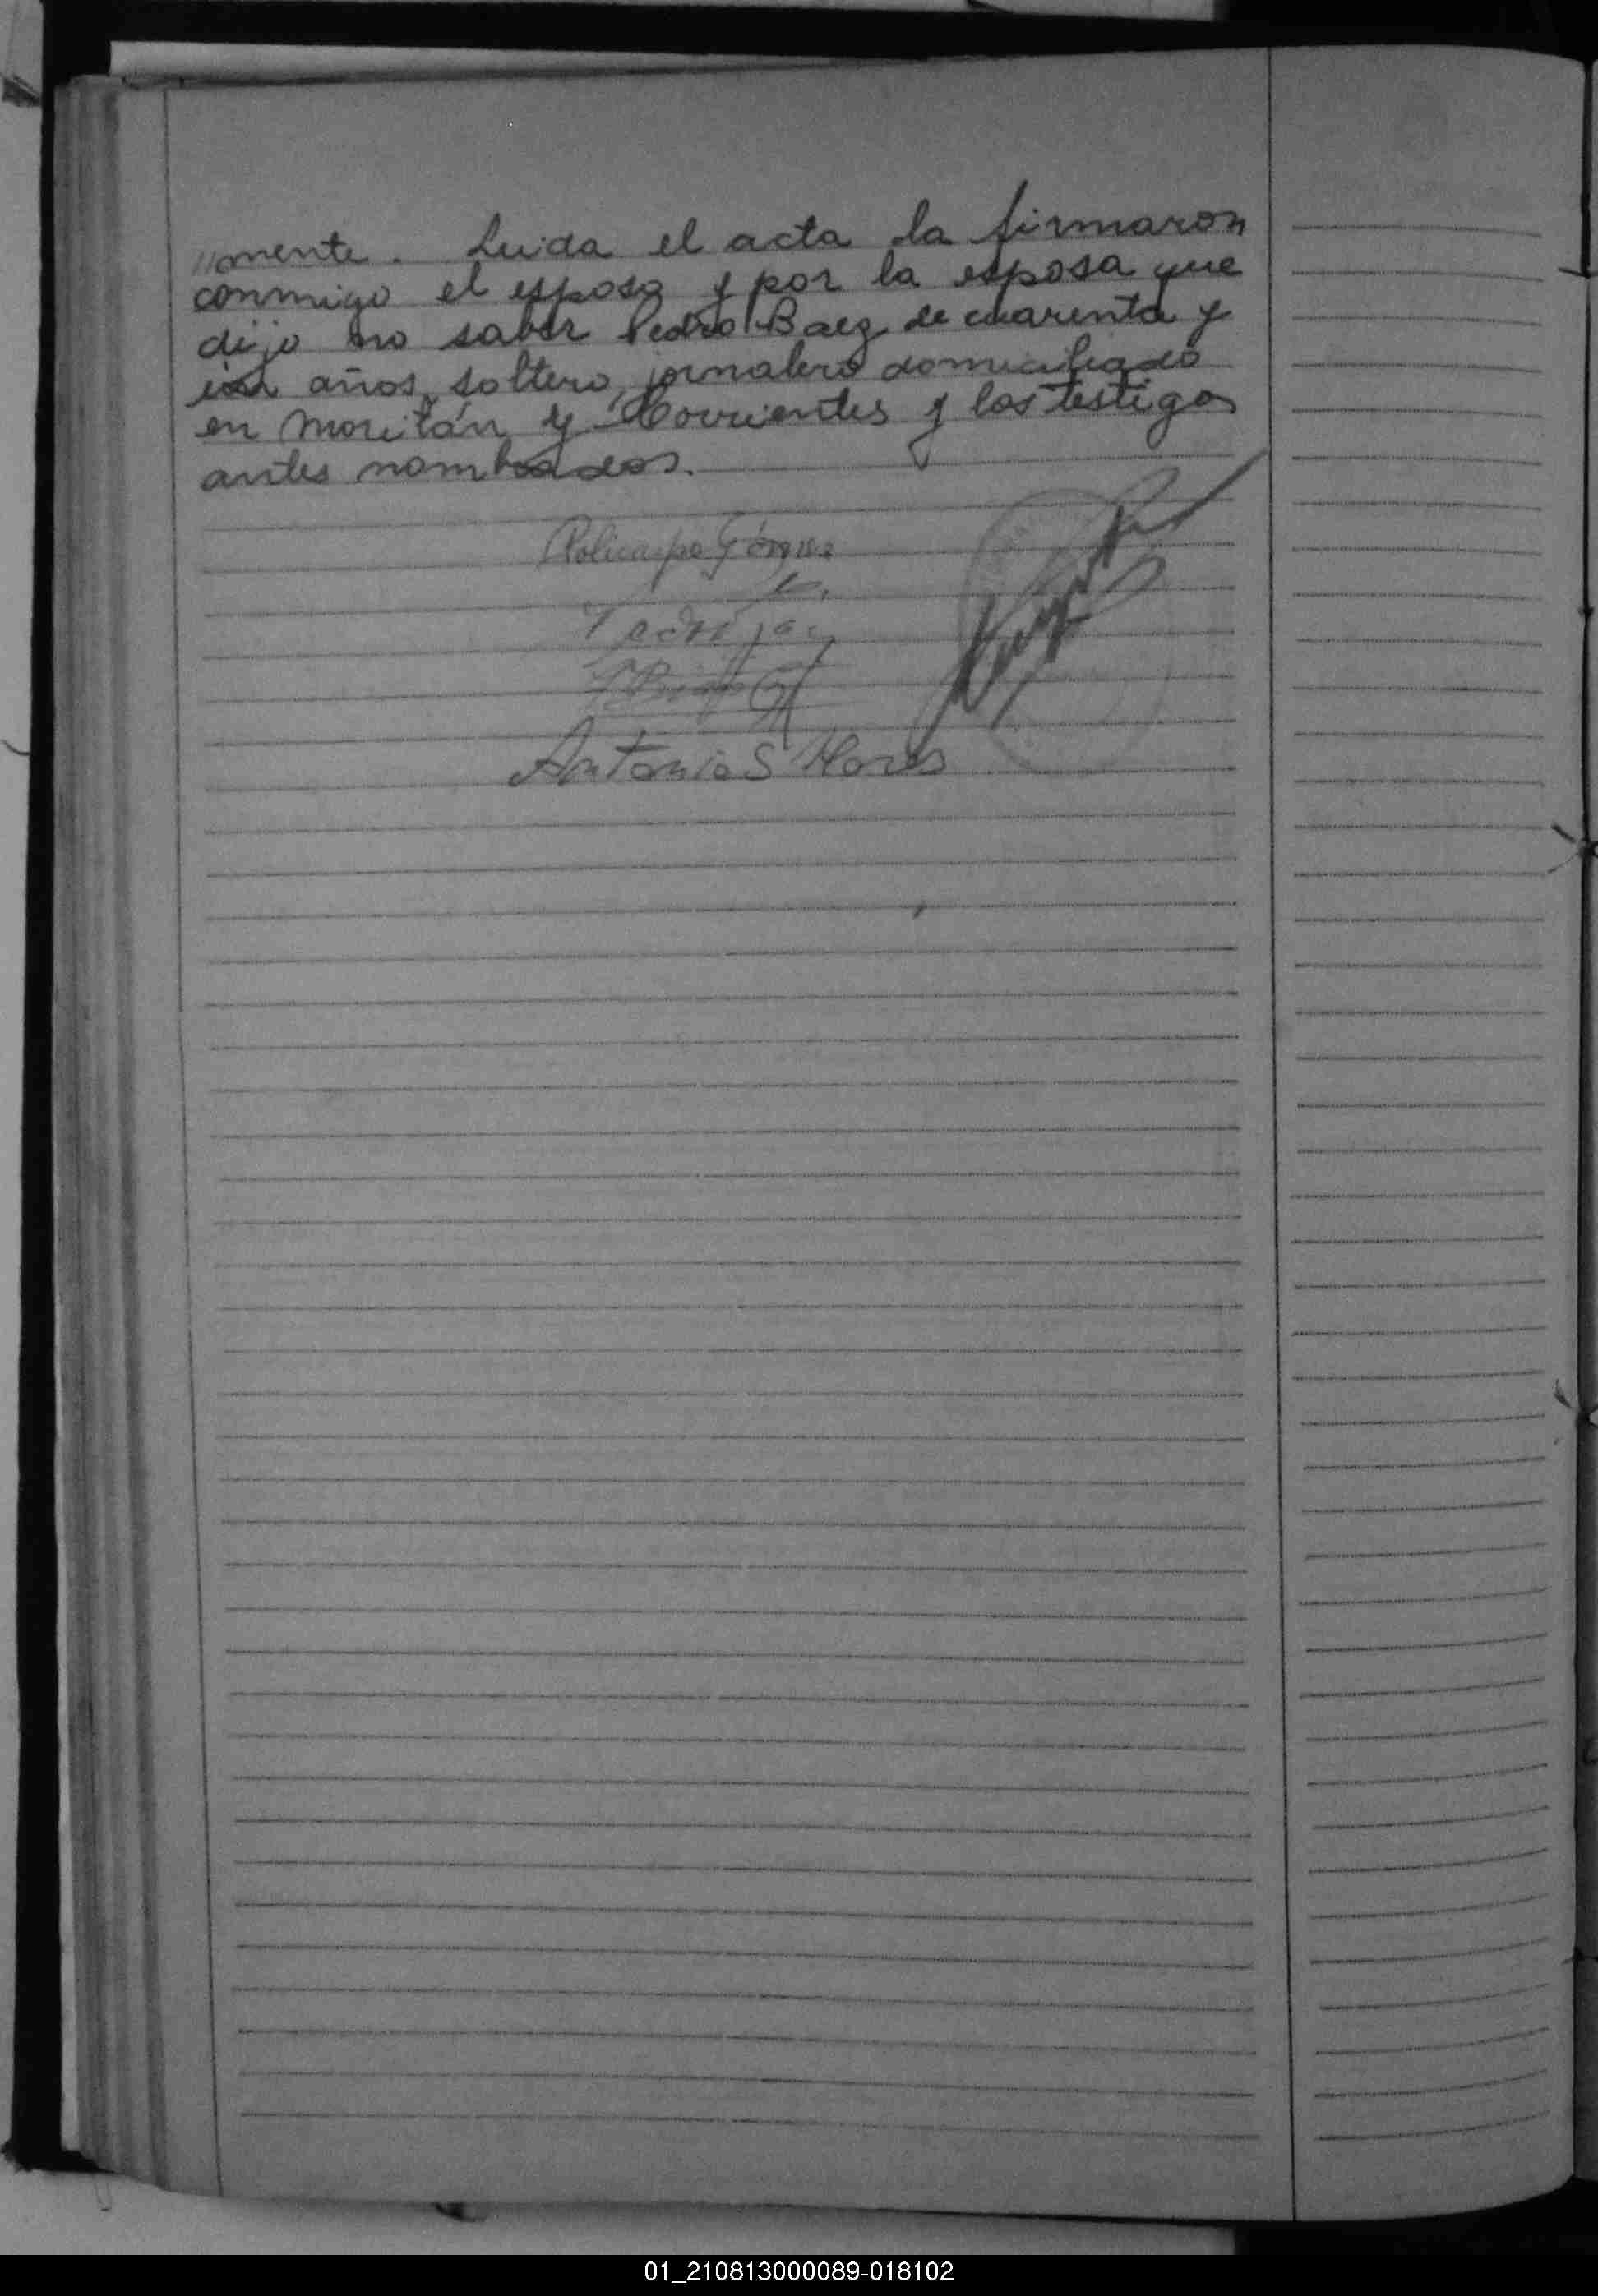 "mente. Leida el acta la firmaron
conmigo el esposo y por la esposa que
dijo no saber Pedro Baez de cuarenta y
años, soltero, jornalero domiciliado
en y Corrientes y los testigos
antes nombrados.
Policarpo Gómez
Antonio S Flores
01_210813000089-018102